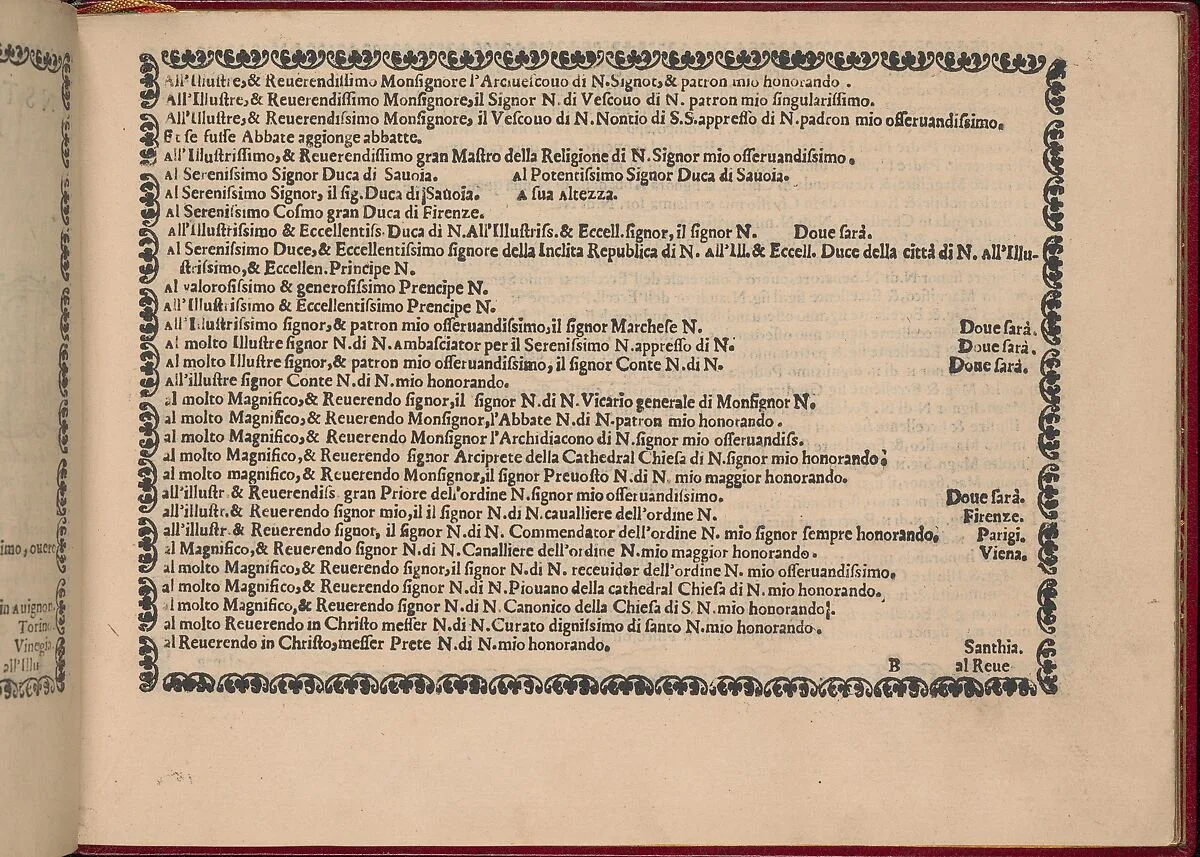 All'Illuſtre,& Reuerendiſſimo Monſignore l'Arciueſcouo di N.Signor,& patron mio honorando .
All'Illuſtre,& Reuerendiſſimo Monſignore,il Signor N. di Veſcouo di N. patron mio ſingulariſſimo.
All'Illuſtre,& Reuerendiſsimo Monſignore, il Veſcouo di N.Nontio di S.S.appreſſo di N.padron mio oſſeruandiſsimo.
Et ſe fuſſe Abbate aggionge abbatte.
All'Illuſtriſſimo,& Reuerendiſſimo gran Maſtro della Religione di N.Signor mio oſſeruandiſsimo.
Al Sereniſſimo Signor Duca di Sauoia. Al Potentiſsimo Signor Duca di Sauoia.
Al Sereniſsimo Signor, il ſig. Duca di Sauoia. A ſua Altezza.
Al Sereniſsimo Coſmo gran Duca di Firenze.
All'Illuſtriſsimo & Eccellentiſs. Duca di N.All'Illuſtriſs.& Eccell.ſignor, il ſignor N. Doue ſarà.
Al Sereniſsimo Duce,& Eccellentiſsimo ſignore della Inclita Republica di N. All'Ill.& Eccell. Duce della città di N. All'Illu-
ſtriſsimo,& Eccellen.Principe N.
Al valoroſiſsimo & generoſiſsimo Prencipe N.
All'Illuſtriſsimo & Eccellentiſsimo Prencipe N.
All'Illuſtriſsimo ſignor,& patron mio oſſeruandiſsimo,il ſignor Marcheſe N. Doue ſarà.
Al molto Illuſtre ſignor N.di N.Ambaſciator per il Sereniſsimo N.appreſſo di N. Doue ſarà.
Al molto Illuſtre ſignor,& patron mio oſſeruandiſsimo, il ſignor Conte N.di N. Doue ſarà.
All'illuſtre ſignor Conte N.di N.mio honorando.
al molto Magnifico,& Reuerendo ſignor,il ſignor N.di N.Vicario generale di Monſignor N.
al molto Magnifico,& Reuerendo Monſignor,l'Abbate N.di N.patron mio honorando .
al molto Magnifico,& Reuerendo Monſignor l'Archidiacono di N.ſignor mio oſſeruandiſs.
al molto Magnifico,& Reuerendo ſignor Arciprete della Cathedral Chieſa di N.ſignor mio honorando.
al molto magnifico,& Reuerendo Monſignor,il ſignor Preuoſto N.di N. mio maggior honorando.
all'illuſtr.& Reuerendiſs gran Priore dell'ordine N.ſignor mio oſſeruandiſsimo. Doue ſarà.
all'illuſtr.& Reuerendo ſignor mio,il il ſignor N.di N.caualliere dell'ordine N. Firenze.
all'illuſtr.& Reuerendo ſignor, il ſignor N.di N. Commendator dell'ordine N. mio ſignor ſempre honorando. Parigi.
al Magnifico,& Reuerendo ſignor N.di N.Canalliere dell'ordine N.mio maggior honorando. Viena.
al molto Magnifico,& Reuerendo ſignor,il ſignor N.di N. receuidor dell'ordine N. mio oſſeruandiſsimo.
al molto Magnifico,& Reuerendo ſignor N.di N.Piouano della cathedral Chieſa di N. mio honorando.
al molto Magnifico,& Reuerendo ſignor N.di N. Canonico della Chieſa di S N.mio honorando.
al molto Reuerendo in Chriſto meſſer N.di N.Curato digniſsimo di ſanto N.mio honorando.
al Reuerendo in Chriſto,meſſer Prete N.di N.mio honorando. Santhia.
B al Reue
imo, ouere
in Auignon.
Torino.
Vinegia.
all'Illu